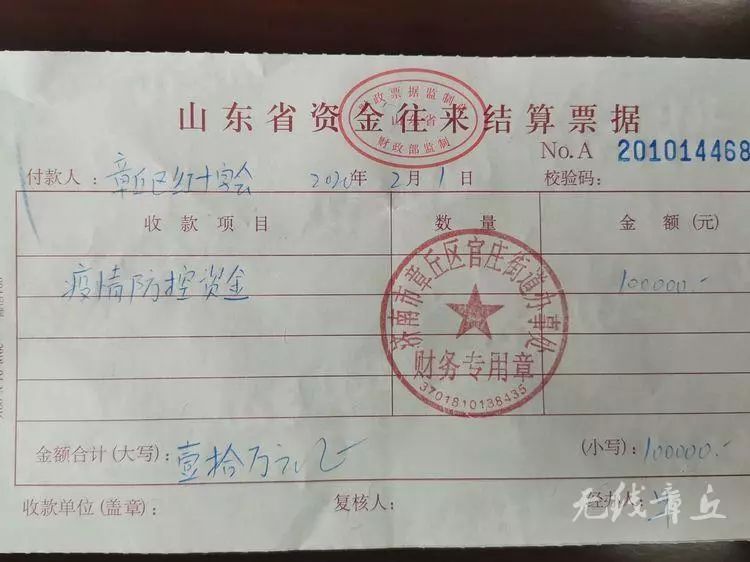 山东省资金往来结算票据
财政票据监制章
山东省
财政部监制
No.A 201014468
付款人：章丘区红十字会 2020年2月1日 校验码：
收款项目 数量 金额(元)
疫情防控资金 100000.-
济南市章丘区官庄街道办事处
财务专用章
3701810138435
金额合计(大写)：壹拾万元 (小写)：100000.-
收款单位(盖章)： 复核人： 经办人：
无线章丘